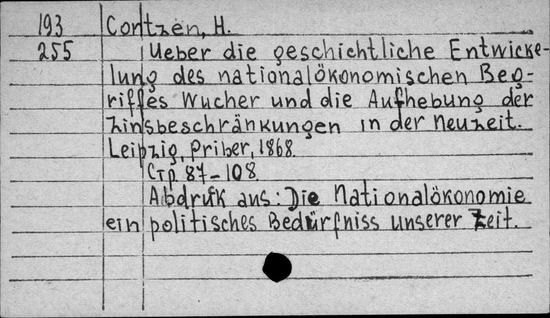 193 Contzen, H.
255 Ueber die geschichtliche Entwicke-
lung des nationalökonomischen Beg-
riffes Wucher und die Aufhebung der
Zinsbeschränkungen in der Neuzeit.
Leipzig, Priber, 1868.
Стр. 87-108.
Abdruk aus: Die Nationalökonomie
ein politisches Bedürfniss unserer Zeit.